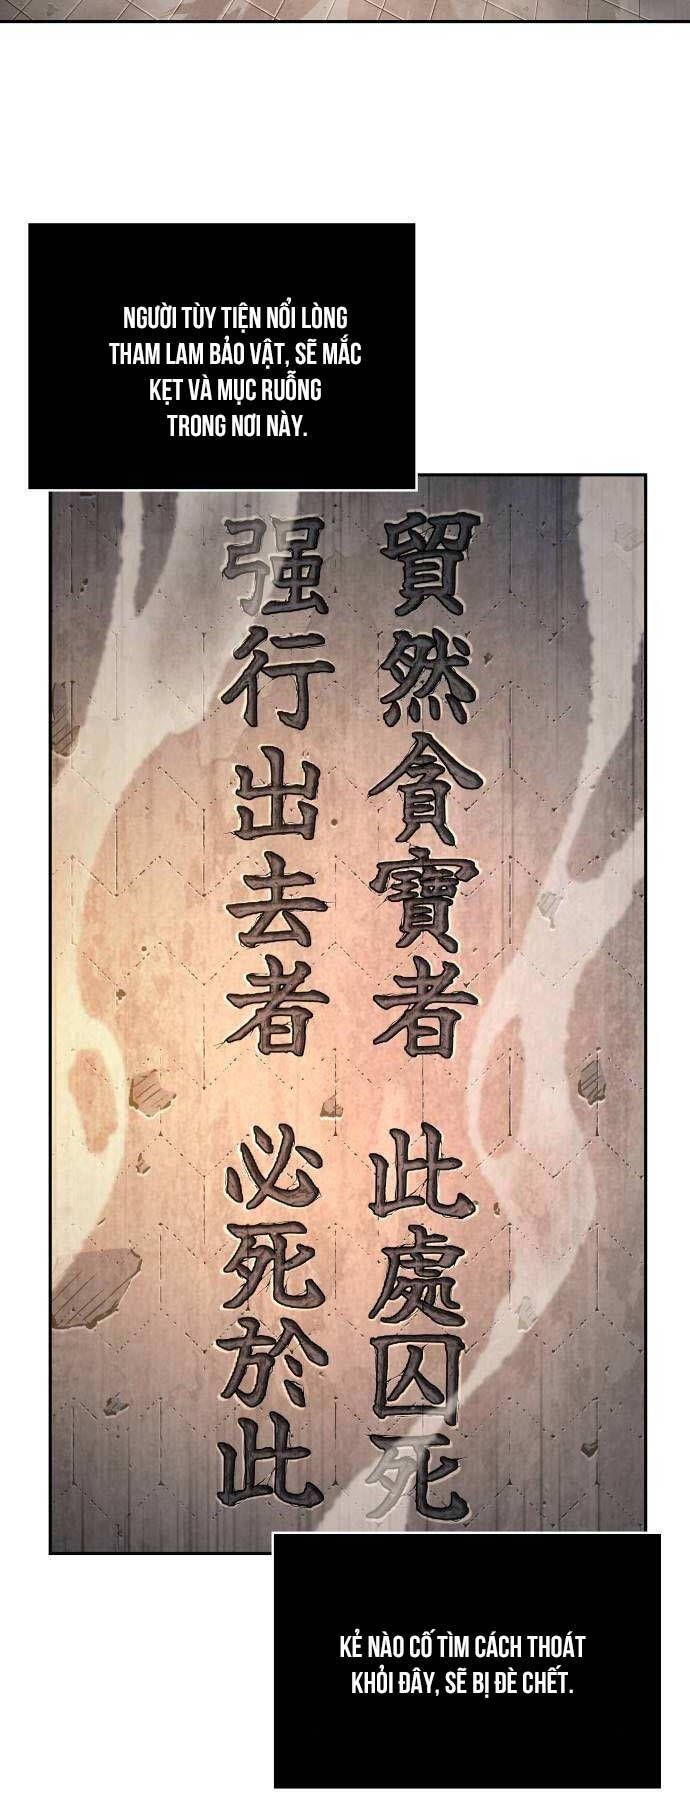 NGƯỜI TÙY TIỆN NỔI LÒNG
THAM LAM BẢO VẬT, SẼ MẮC
KẸT VÀ MỤC RUỖNG
TRONG NƠI NÀY.
貿然貪寶者 此處囚死
强行出去者 必死於此
KẺ NÀO CỐ TÌM CÁCH THOÁT
KHỎI ĐÂY, SẼ BỊ ĐÈ CHẾT.